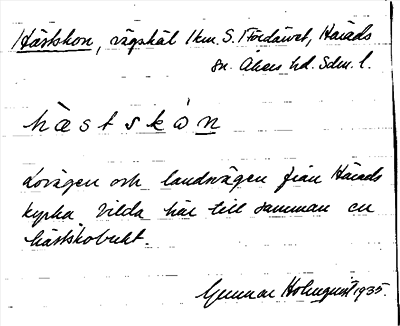 Hästskon, vägskäl 1 km. S. Fördärvet, Härads
sn. Åkers hd. Sdm. l.
hästskon
Lovägen och landsvägen från Härads
kyrka bilda här till samman en
hästskobukt.
Gunnar Holmquist 1935.